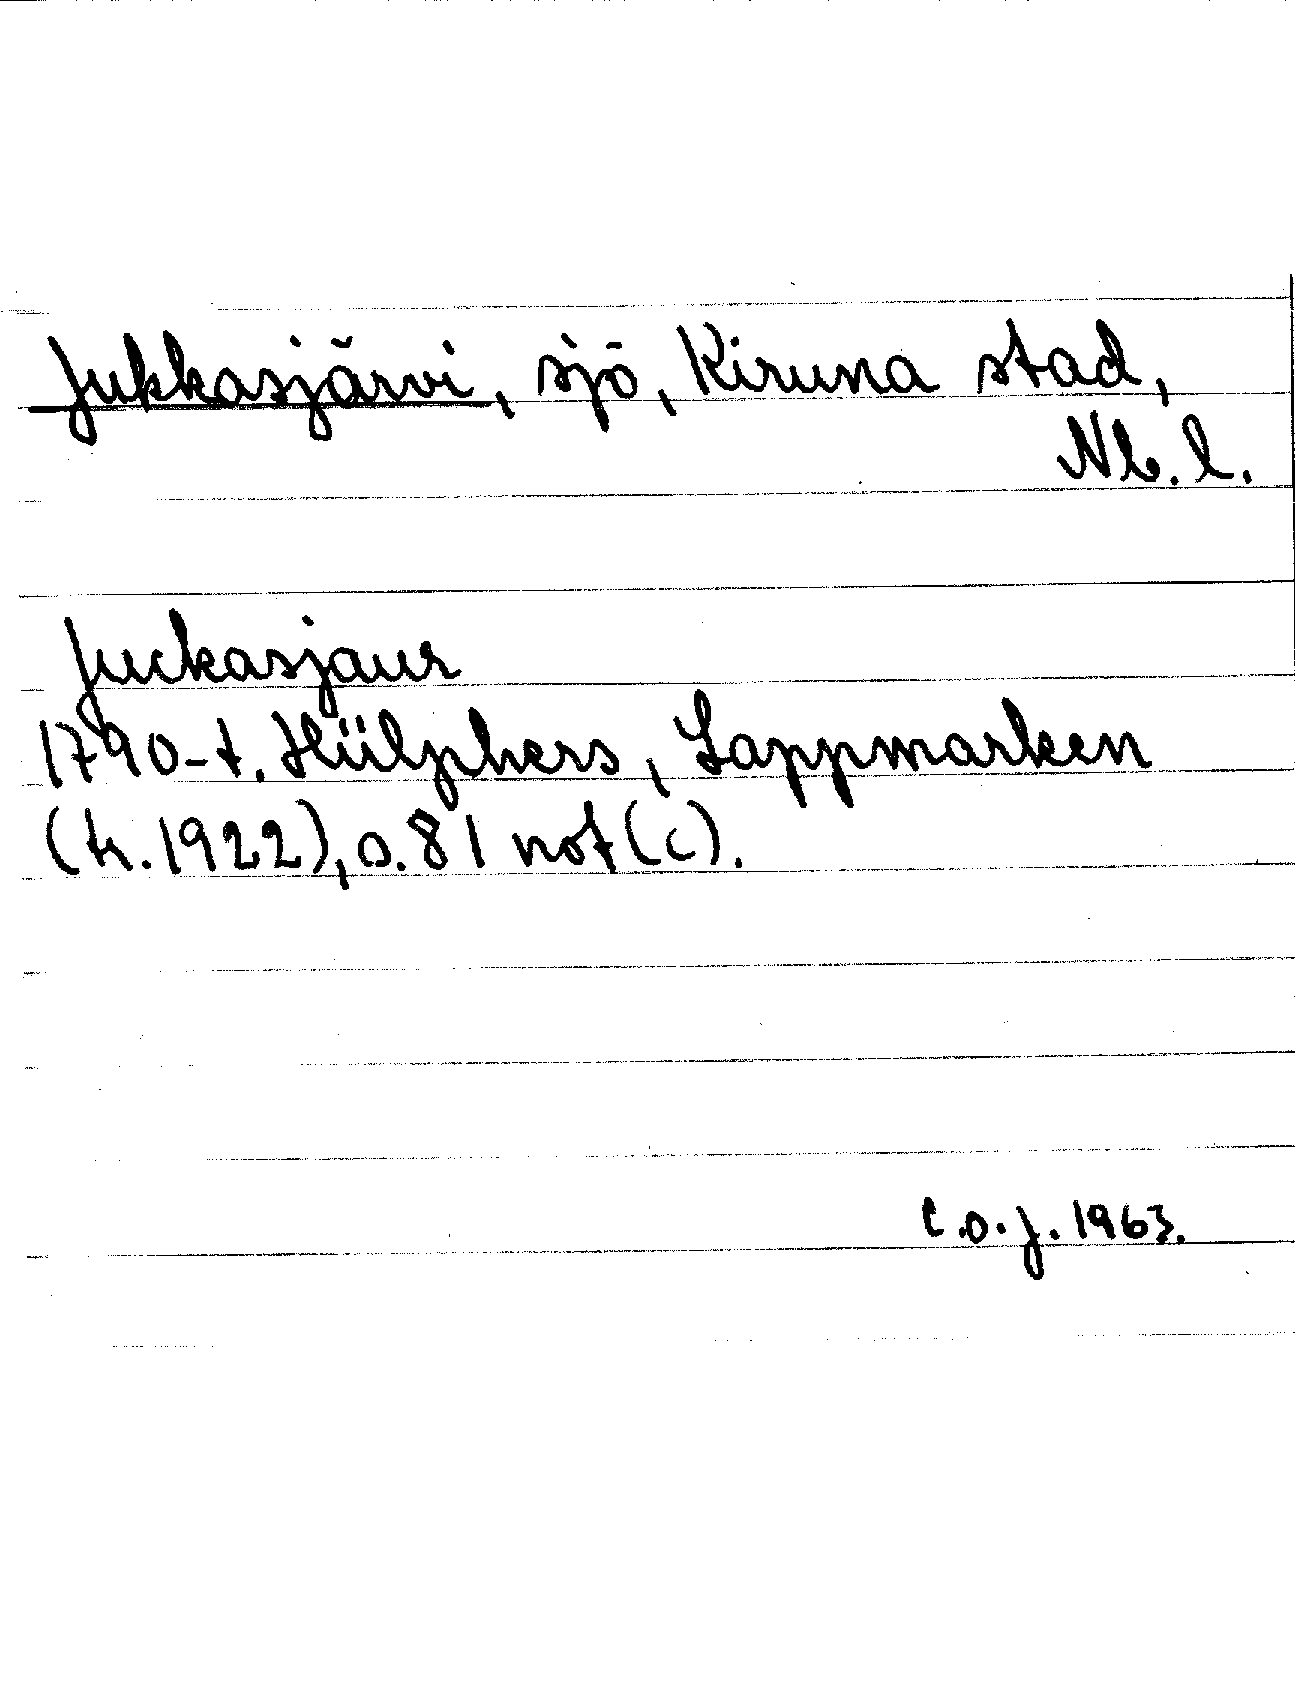 Jukkasjärvi, sjö, Kiruna stad,
Nb. l.
Juckasjaur
1790-t. Hülphers, Lappmarken
(tr. 1922), s. 81 not (c).
C.O.J. 1963.